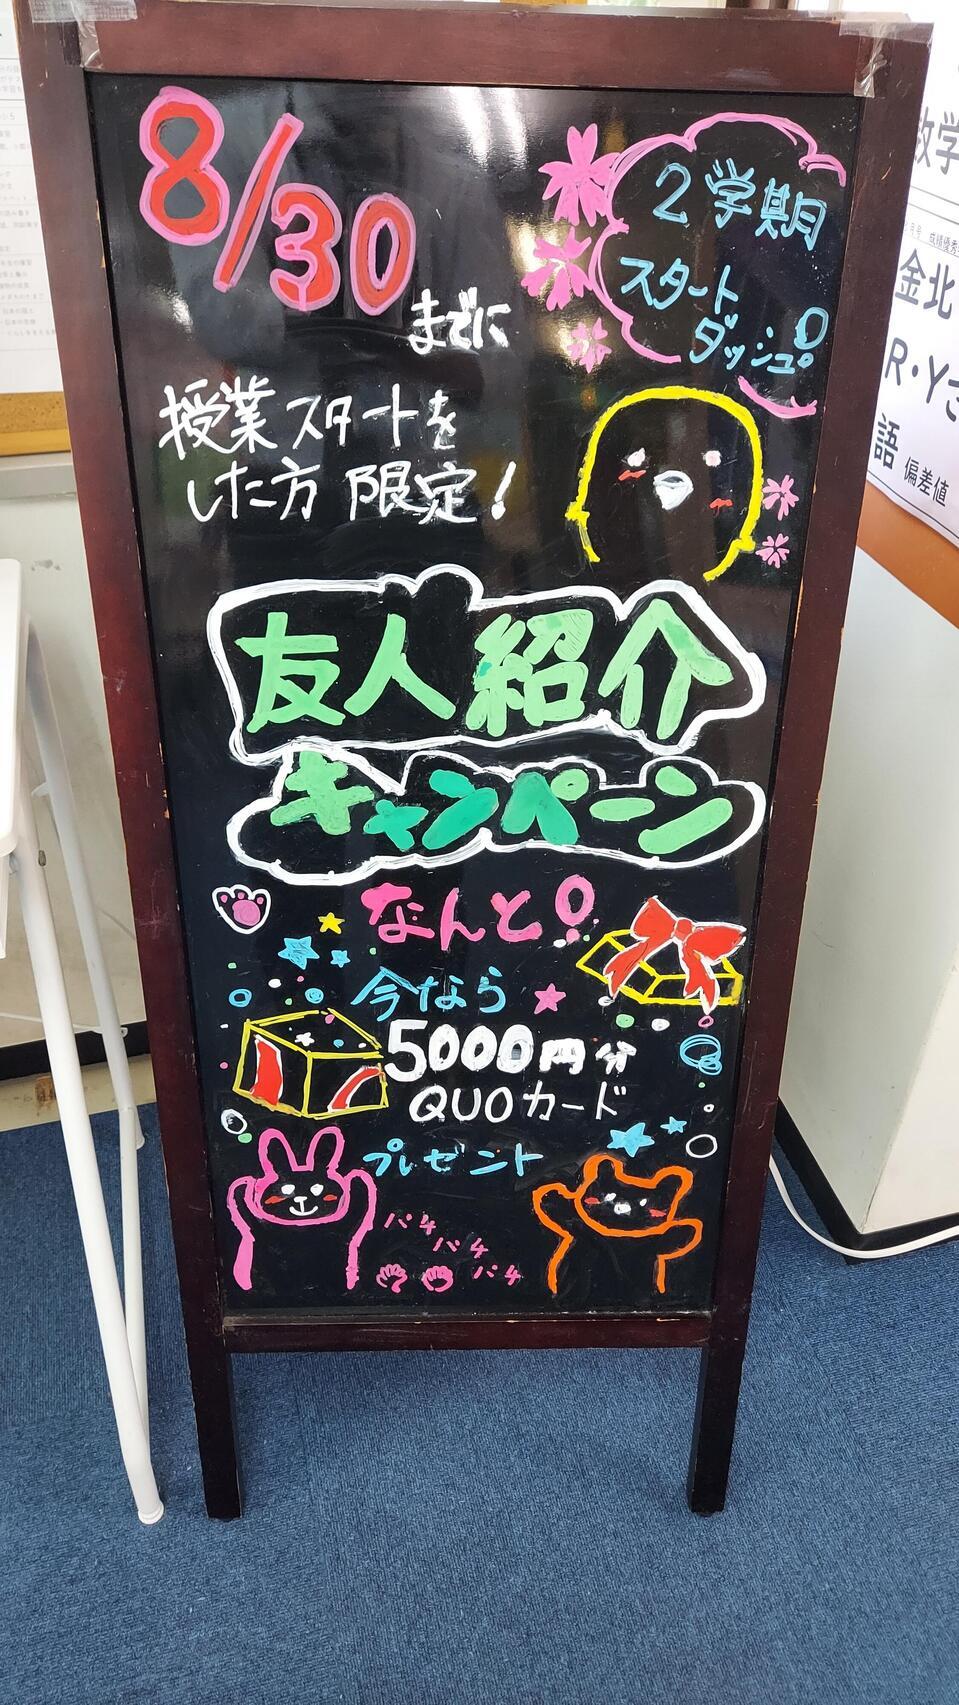 8/30
までに
2学期
スタート
ダッシュ!
授業スタートを
した方 限定!
友人紹介
キャンペーン
なんと!
今なら
5000円分
QUOカード
プレゼント
パチ
パチ
パチ
数学
成績優秀
金北
R・Yさ
語 偏差値